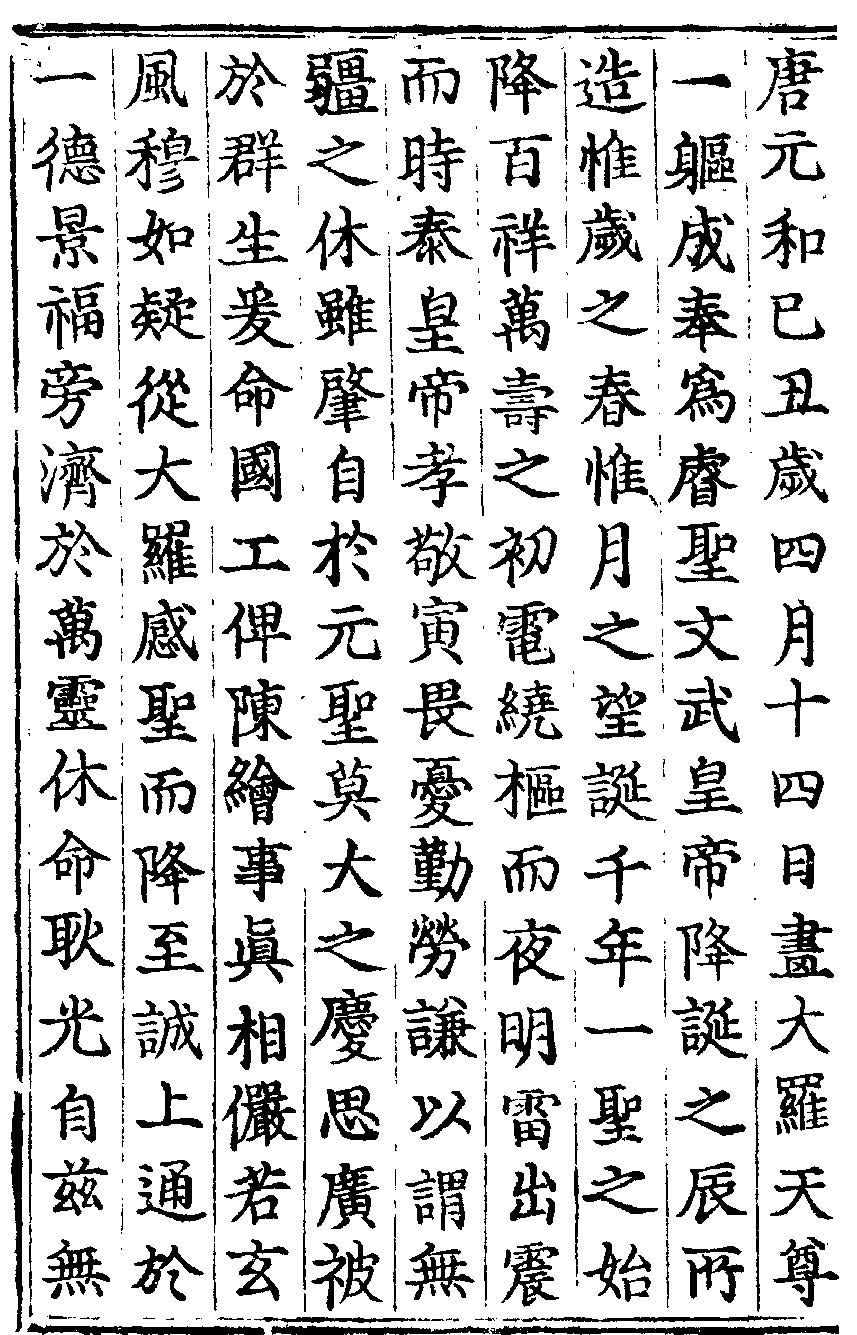 唐元和已丑歲四月十四日畫大羅天尊
一軀成奉為睿聖文武皇帝降誕之辰所
造惟歲之春惟月之望誕千年一聖之始
降百祥萬壽之初電繞樞而夜明雷出震
而時泰皇帝孝敬寅畏憂勤勞謙以謂無
疆之休雖肇自於元聖莫大之慶思廣被
於群生爰命國工俾陳繪事眞相儼若玄
風穆如疑從大羅感聖而降至誠上通於
一德景福旁濟於萬靈休命耿光自茲無